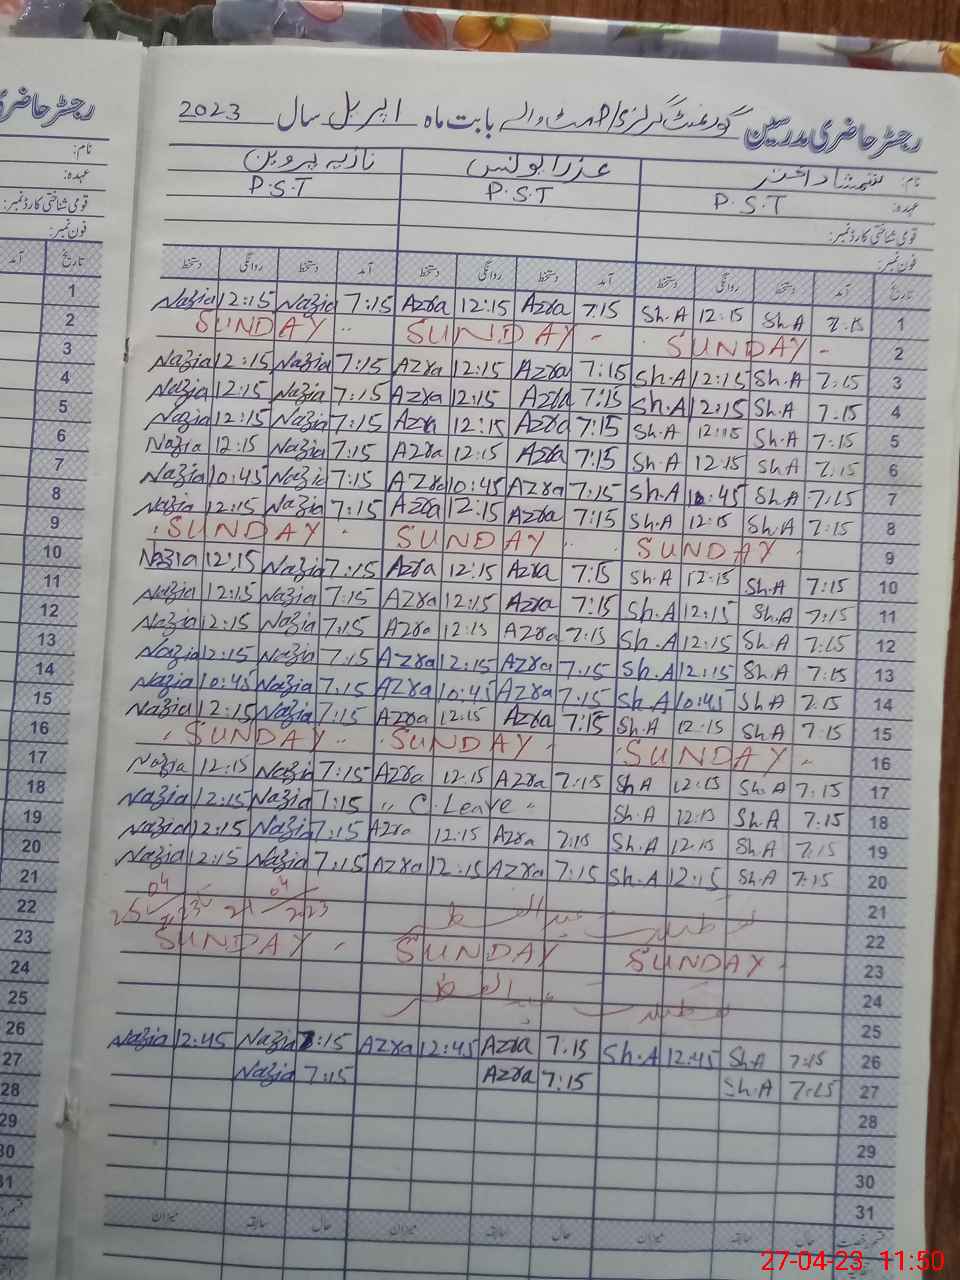 رجسٹر حاضری مدرسین گورنمنٹ گرلز بابت ماہ اپریل سال 2023
نام: شمشاد اختر عذرا یونس نازیہ پروین
عہدہ: P.S.T P.S.T P.S.T
قومی شناختی کارڈ نمبر:
فون نمبر:
تاریخ آمد دستخط روانگی دستخط آمد دستخط روانگی دستخط آمد دستخط روانگی دستخط تاریخ
1 Nazia 12:15 Nazia 7:15 Azra 12:15 Azra 7:15 Sh.A 12:15 Sh.A 7:15 1
2 SUNDAY SUNDAY SUNDAY 2
3 Nazia 12:15 Nazia 7:15 Azra 12:15 Azra 7:15 Sh.A 12:15 Sh.A 7:15 3
4 Nazia 12:15 Nazia 7:15 Azra 12:15 Azra 7:15 Sh.A 12:15 Sh.A 7:15 4
5 Nazia 12:15 Nazia 7:15 Azra 12:15 Azra 7:15 Sh.A 12:15 Sh.A 7:15 5
6 Nazia 12:15 Nazia 7:15 Azra 12:15 Azra 7:15 Sh.A 12:15 Sh.A 7:15 6
7 Nazia 10:45 Nazia 7:15 Azra 10:45 Azra 7:15 Sh.A 10:45 Sh.A 7:15 7
8 Nazia 12:15 Nazia 7:15 Azra 12:15 Azra 7:15 Sh.A 12:15 Sh.A 7:15 8
9 SUNDAY SUNDAY SUNDAY 9
10 Nazia 12:15 Nazia 7:15 Azra 12:15 Azra 7:15 Sh.A 12:15 Sh.A 7:15 10
11 Nazia 12:15 Nazia 7:15 Azra 12:15 Azra 7:15 Sh.A 12:15 Sh.A 7:15 11
12 Nazia 12:15 Nazia 7:15 Azra 12:15 Azra 7:15 Sh.A 12:15 Sh.A 7:15 12
13 Nazia 12:15 Nazia 7:15 Azra 12:15 Azra 7:15 Sh.A 12:15 Sh.A 7:15 13
14 Nazia 10:45 Nazia 7:15 Azra 10:45 Azra 7:15 Sh.A 10:45 Sh.A 7:15 14
15 Nazia 12:15 Nazia 7:15 Azra 12:15 Azra 7:15 Sh.A 12:15 Sh.A 7:15 15
16 SUNDAY SUNDAY SUNDAY 16
17 Nazia 12:15 Nazia 7:15 Azra 12:15 Azra 7:15 Sh.A 12:15 Sh.A 7:15 17
18 Nazia 12:15 Nazia 7:15 " C. Leave " Sh.A 12:15 Sh.A 7:15 18
19 Nazia 12:15 Nazia 7:15 Azra 12:15 Azra 7:15 Sh.A 12:15 Sh.A 7:15 19
20 Nazia 12:15 Nazia 7:15 Azra 12:15 Azra 7:15 Sh.A 12:15 Sh.A 7:15 20
21 تعطیلات عید الفطر 21
22 22
23 SUNDAY SUNDAY SUNDAY 23
24 تعطیلات عید الفطر 24
25 25
26 Nazia 12:45 Nazia 7:15 Azra 12:45 Azra 7:15 Sh.A 12:45 Sh.A 7:15 26
27 Nazia 7:15 Azra 7:15 Sh.A 7:15 27
28 28
29 29
30 30
31 31
حال سابقہ میزان حال سابقہ میزان حال سابقہ میزان
27-04-23 11:50